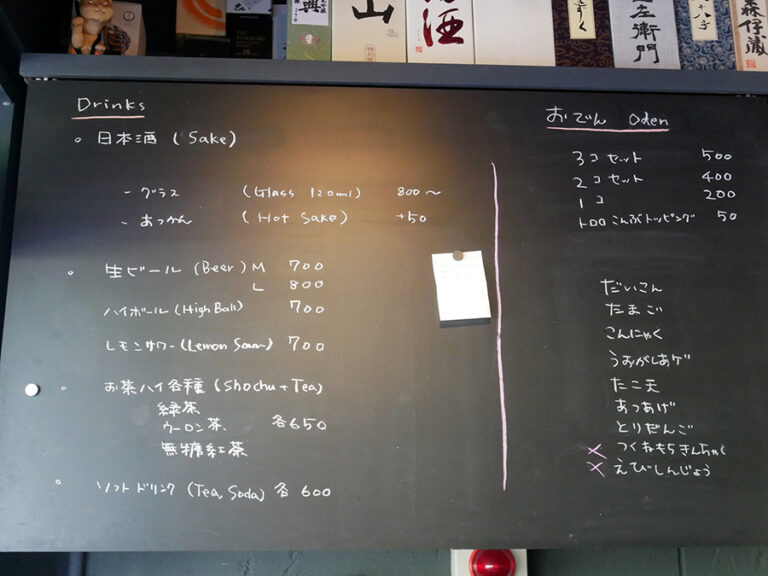 山
酒
左衛門
十八字
森伊蔵
Drinks
日本酒 (Sake)
- グラス (Glass 120ml) 800〜
- あつかん (Hot Sake) +50
生ビール (Beer) M 700
L 800
ハイボール (High Ball) 700
レモンサワー (Lemon Sour) 700
お茶ハイ各種 (Shochu + Tea)
緑茶
ウーロン茶 各650
無糖紅茶
ソフトドリンク (Tea, Soda) 各 600
おでん Oden
3コ セット 500
2コ セット 400
1コ 200
トロロこんぶトッピング 50
だいこん
たまご
こんにゃく
うおがしあげ
たこ天
あつあげ
とりだんご
× つくねもちきんちゃく
× えびしんじょう